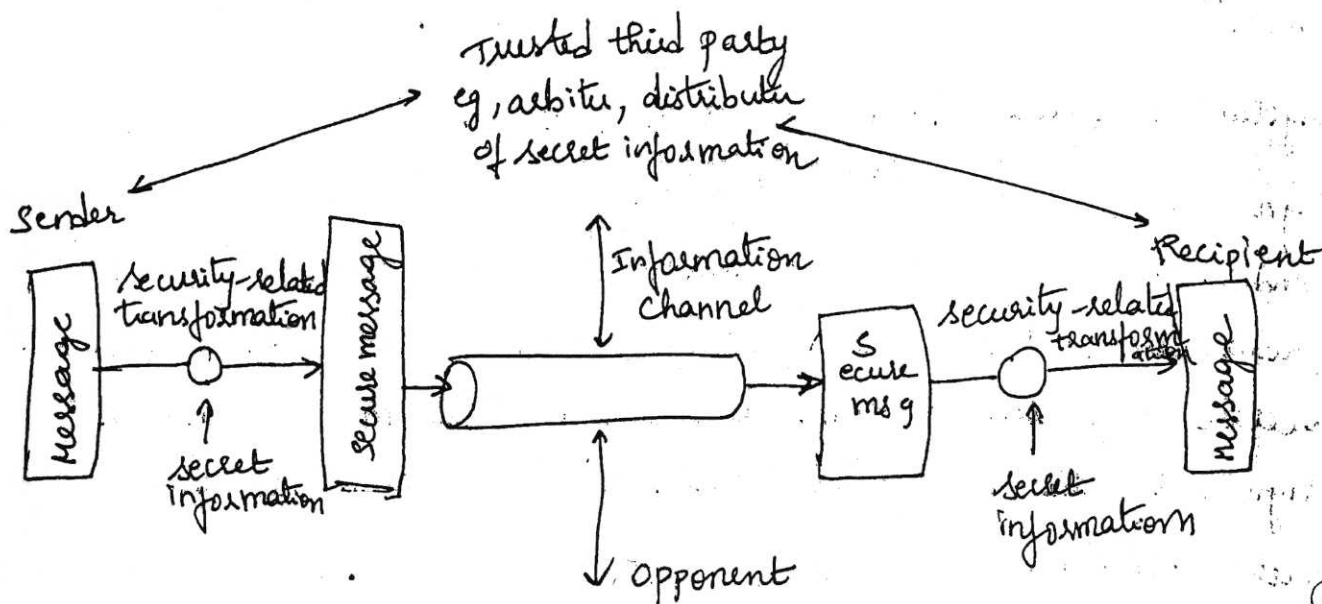 Trusted third party
eg, arbiter, distributer
of secret information
Sender
Recipient
Message
security-related
transformation
secret
information
secure message
Information
channel
Opponent
S
ecure
msg
security-related
transform
ation
secret
information
Message